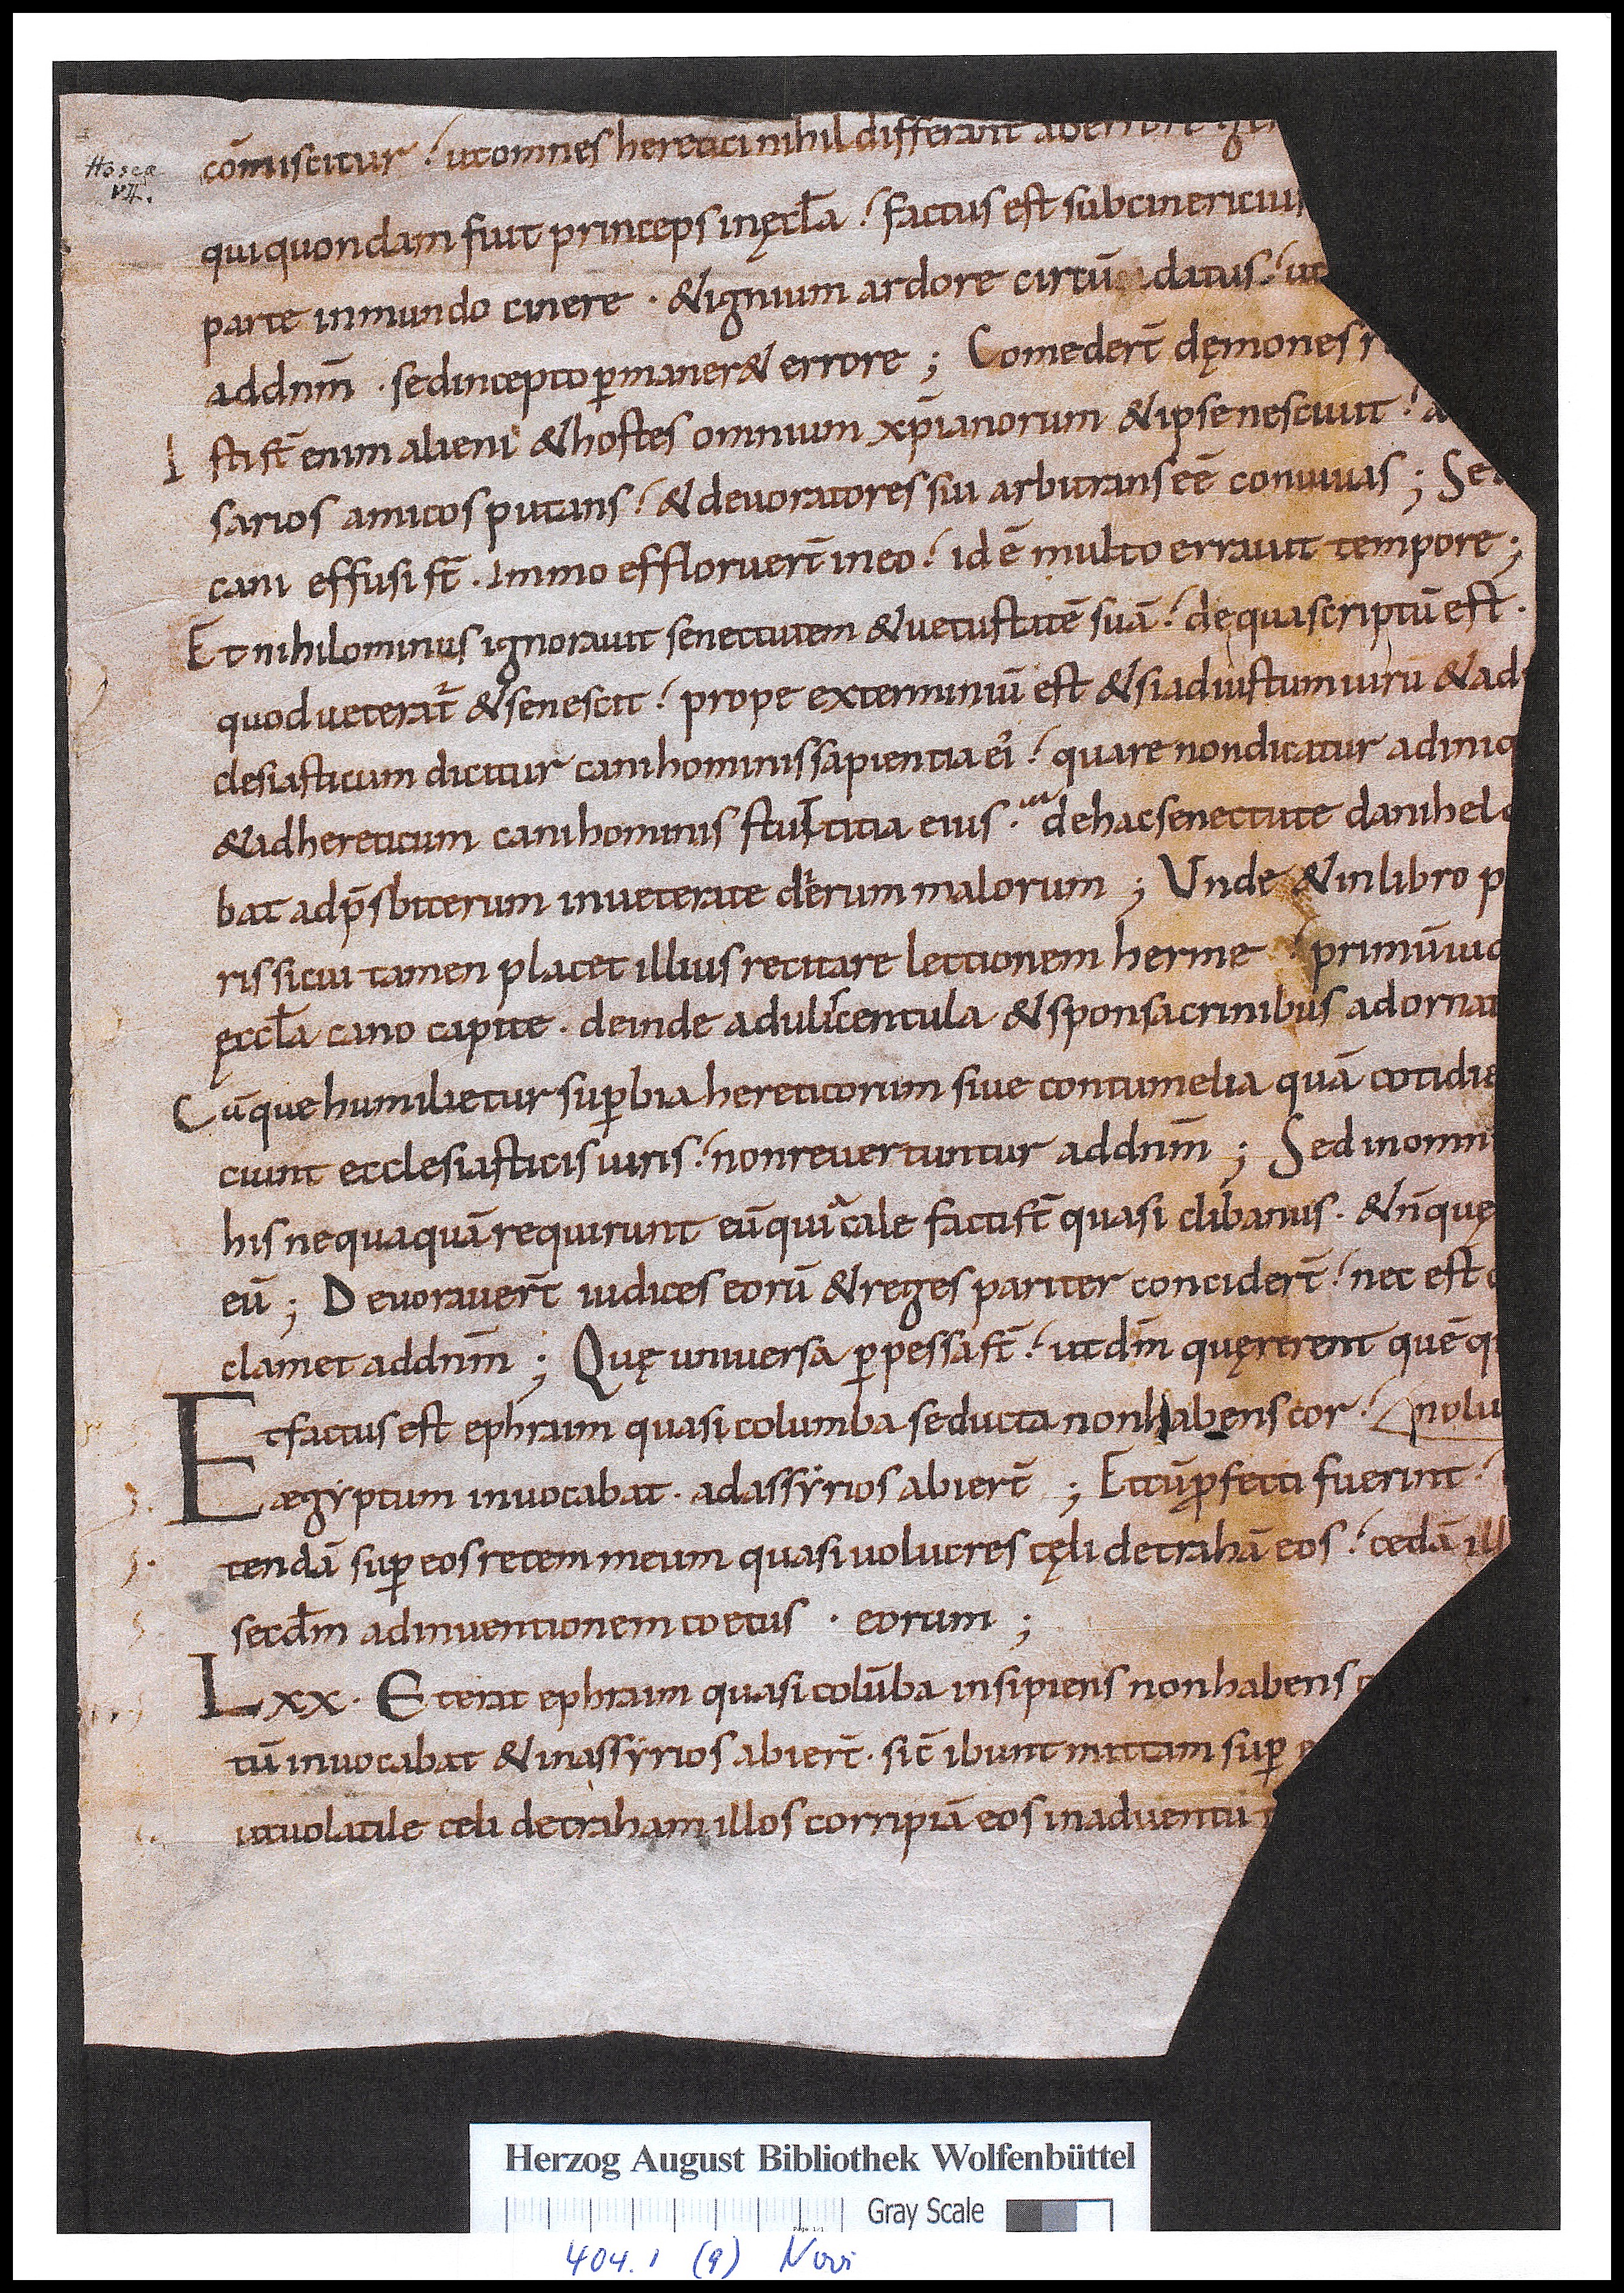 Hosea
VII.
cōmiscitur / ut omnes heretici nihil differant ab errore
qui quondam fuit princeps in ęccła / factus est subcinericius
parte inmundo cinere · & ignium ardore circūdatus / ut
ad dnm̄ · sed incepto ꝑmaner& errore ; Comedert̄ dęmones
Isti st̄ enim alieni & hostes omnium xp̄ianorum & ipse nesciuit /
sarios amicos putans / & deuoratores sui arbitrans eē conuiuas ; Sed
cani effusi st̄ · Immo effloruert̄ in eo / id ē multo errauit tempore ;
Et nihilominus ignorauit senectutem & uetustatē suā / de qua scriptū est ·
quod ueterat̄ & senescit / prope exterminiū est & si ad iustum uirū & ad
clesiasticum dicitur cani hominis sapientia ei / quare non dicatur ad iniq
& ad hereticum cani hominis stultitia eius · de hac senectute danihel
bat ad p̄sbiterum inueterate dierum malorum ; Unde & in libro p
ris si cui tamen placet illius recitare lectionem herme / primū uid
ęccła cano capite · deinde adulicentula & sponsa crinibus adornat
Cūque humilietur suꝑbia hereticorum siue contumelia quā cotidie
ciunt ecclesiasticis uiris / non reuertuntur ad dnm̄ ; Sed in omni
his nequaquā requirunt eū qui cale facti st̄ quasi clibanus · & n̄ quę
eū ; Deuorauert̄ iudices eorū & reges pariter concidert̄ / nec est
clamet ad dnm̄ ; Quę uniuersa ꝑpessa st̄ / ut dm̄ quęrerent quē q
Et factus est ephraim quasi columba seducta non habens cor /
ægyptum inuocabat · ad assyrios abiert̄ ; Et cū ꝓfecti fuerint /
tendā suꝑ eos retem meum quasi uolucres cęli detrahā eos / cedā ill
secdm̄ adinuentionem coetus · eorum ;
Lxx · Et erat ephraim quasi colūba insipiens non habens
tū inuocabat & in assyrios abiert̄ · sic̄ ibunt mittam suꝑ
ut uolatile celi detraham illos corripiā eos in aduentu
Herzog August Bibliothek Wolfenbüttel
Gray Scale
404.1 (9) Novi